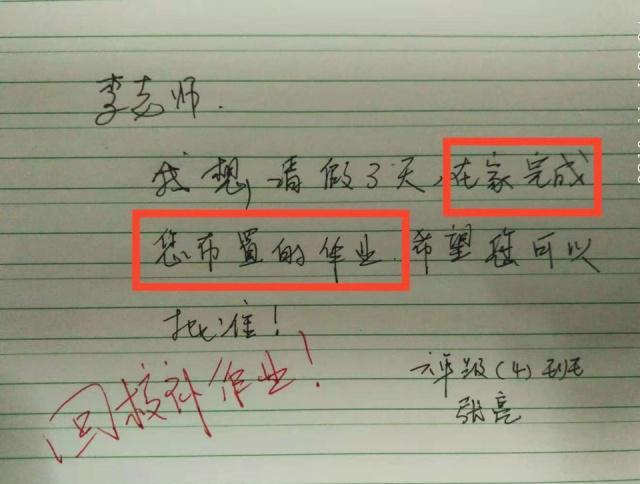 李老师.
我想请假3天,在家完成
您布置的作业.希望您可以
批准!
六年级(4)班
张亮
回校补作业!